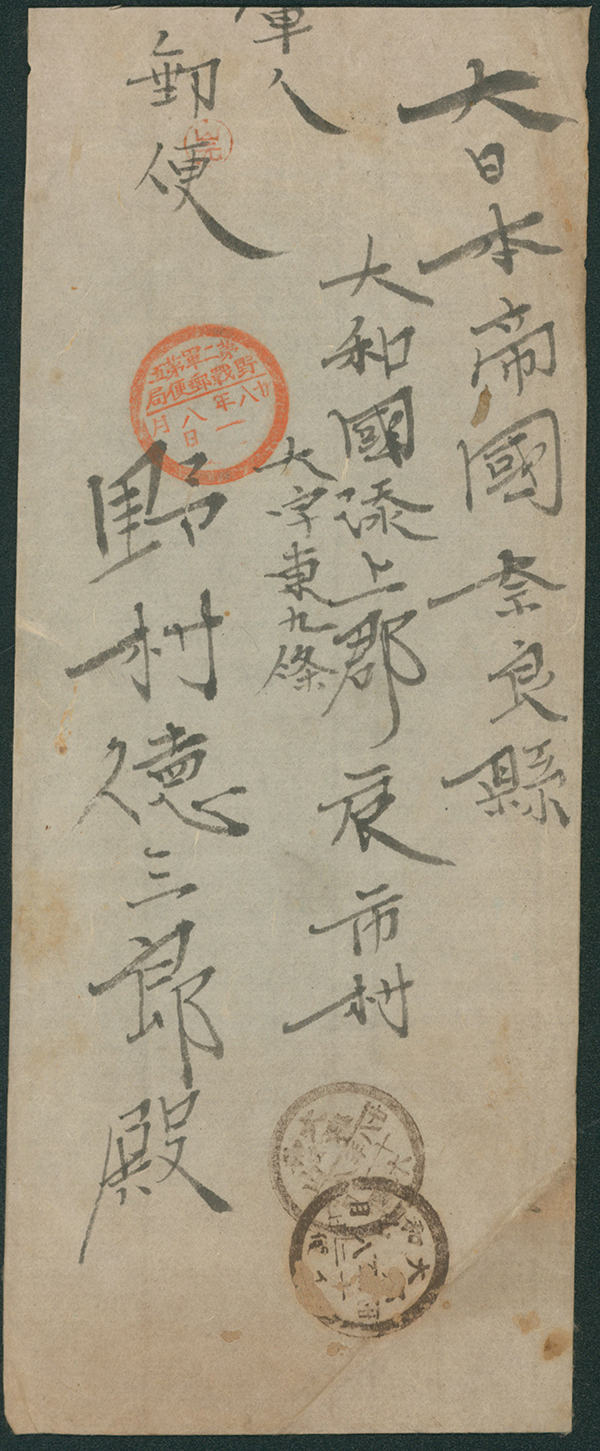 大日本帝國奈良縣
大和國添上郡辰市村
大字東九條
野村德三郎殿
軍人
郵便
第二軍第五
野戰郵便局
廿八年
八月一日
大和